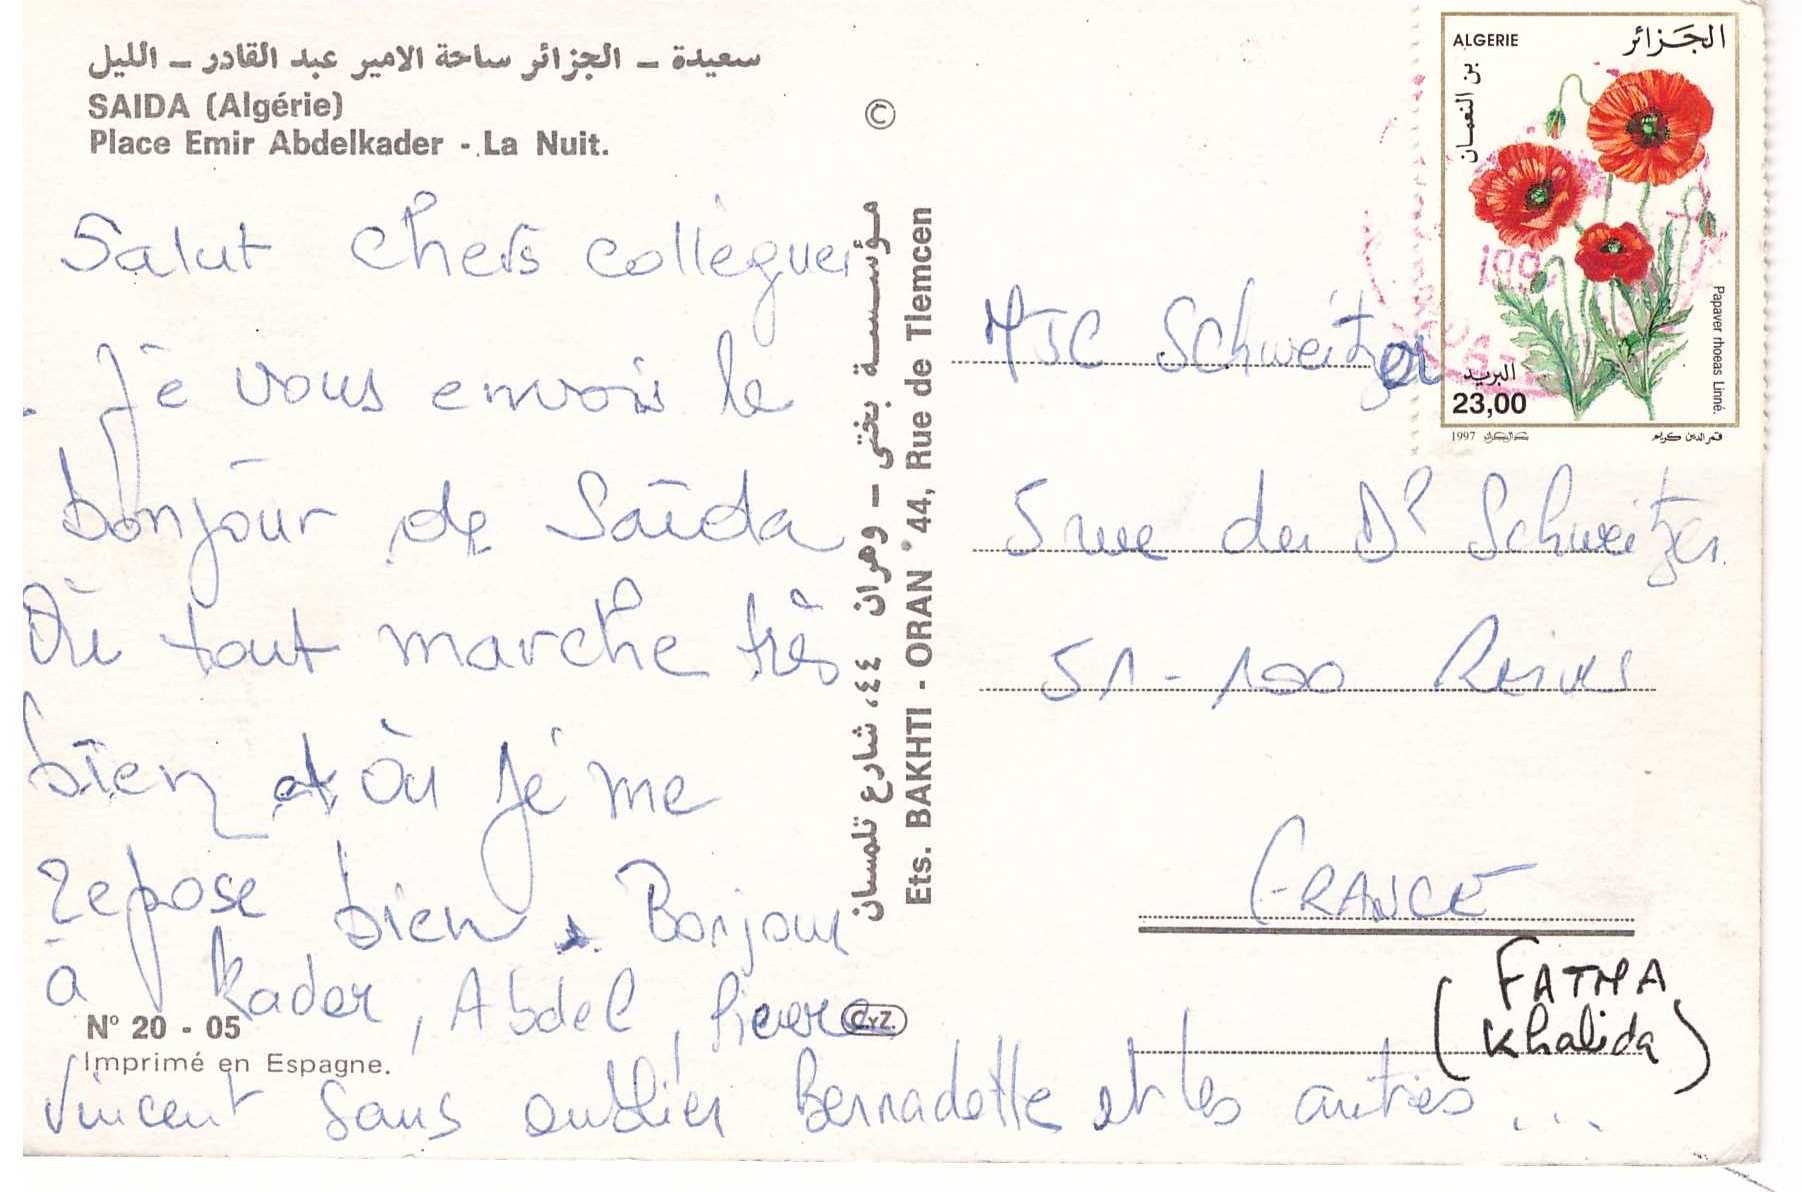 سعيدة – الجزائر ساحة الامير عبد القادر – الليل
SAIDA (Algérie)
Place Emir Abdelkader - La Nuit.
©
Salut chers collègues
Je vous envois le
bonjour de Saïda
Où tout marche très
bien et où je me
repose bien. Bonjour
à Kader, Abdel, Pierre
Vincent sans oublier Bernadette et les autres...
N° 20 - 05
Imprimé en Espagne.
مؤسسة بختي – وهران ٤٤، شارع تلمسان
Ets. BAKHTI - ORAN 44, Rue de Tlemcen
C.YZ.
ALGERIE الجزائر
بن النعمان
Papaver rhoeas Linné.
البريد
23,00
1997
MJC Schweitzer
5 rue du Dr Schweitzer
51-100 Reims
FRANCE
(FATMA
Khalida)